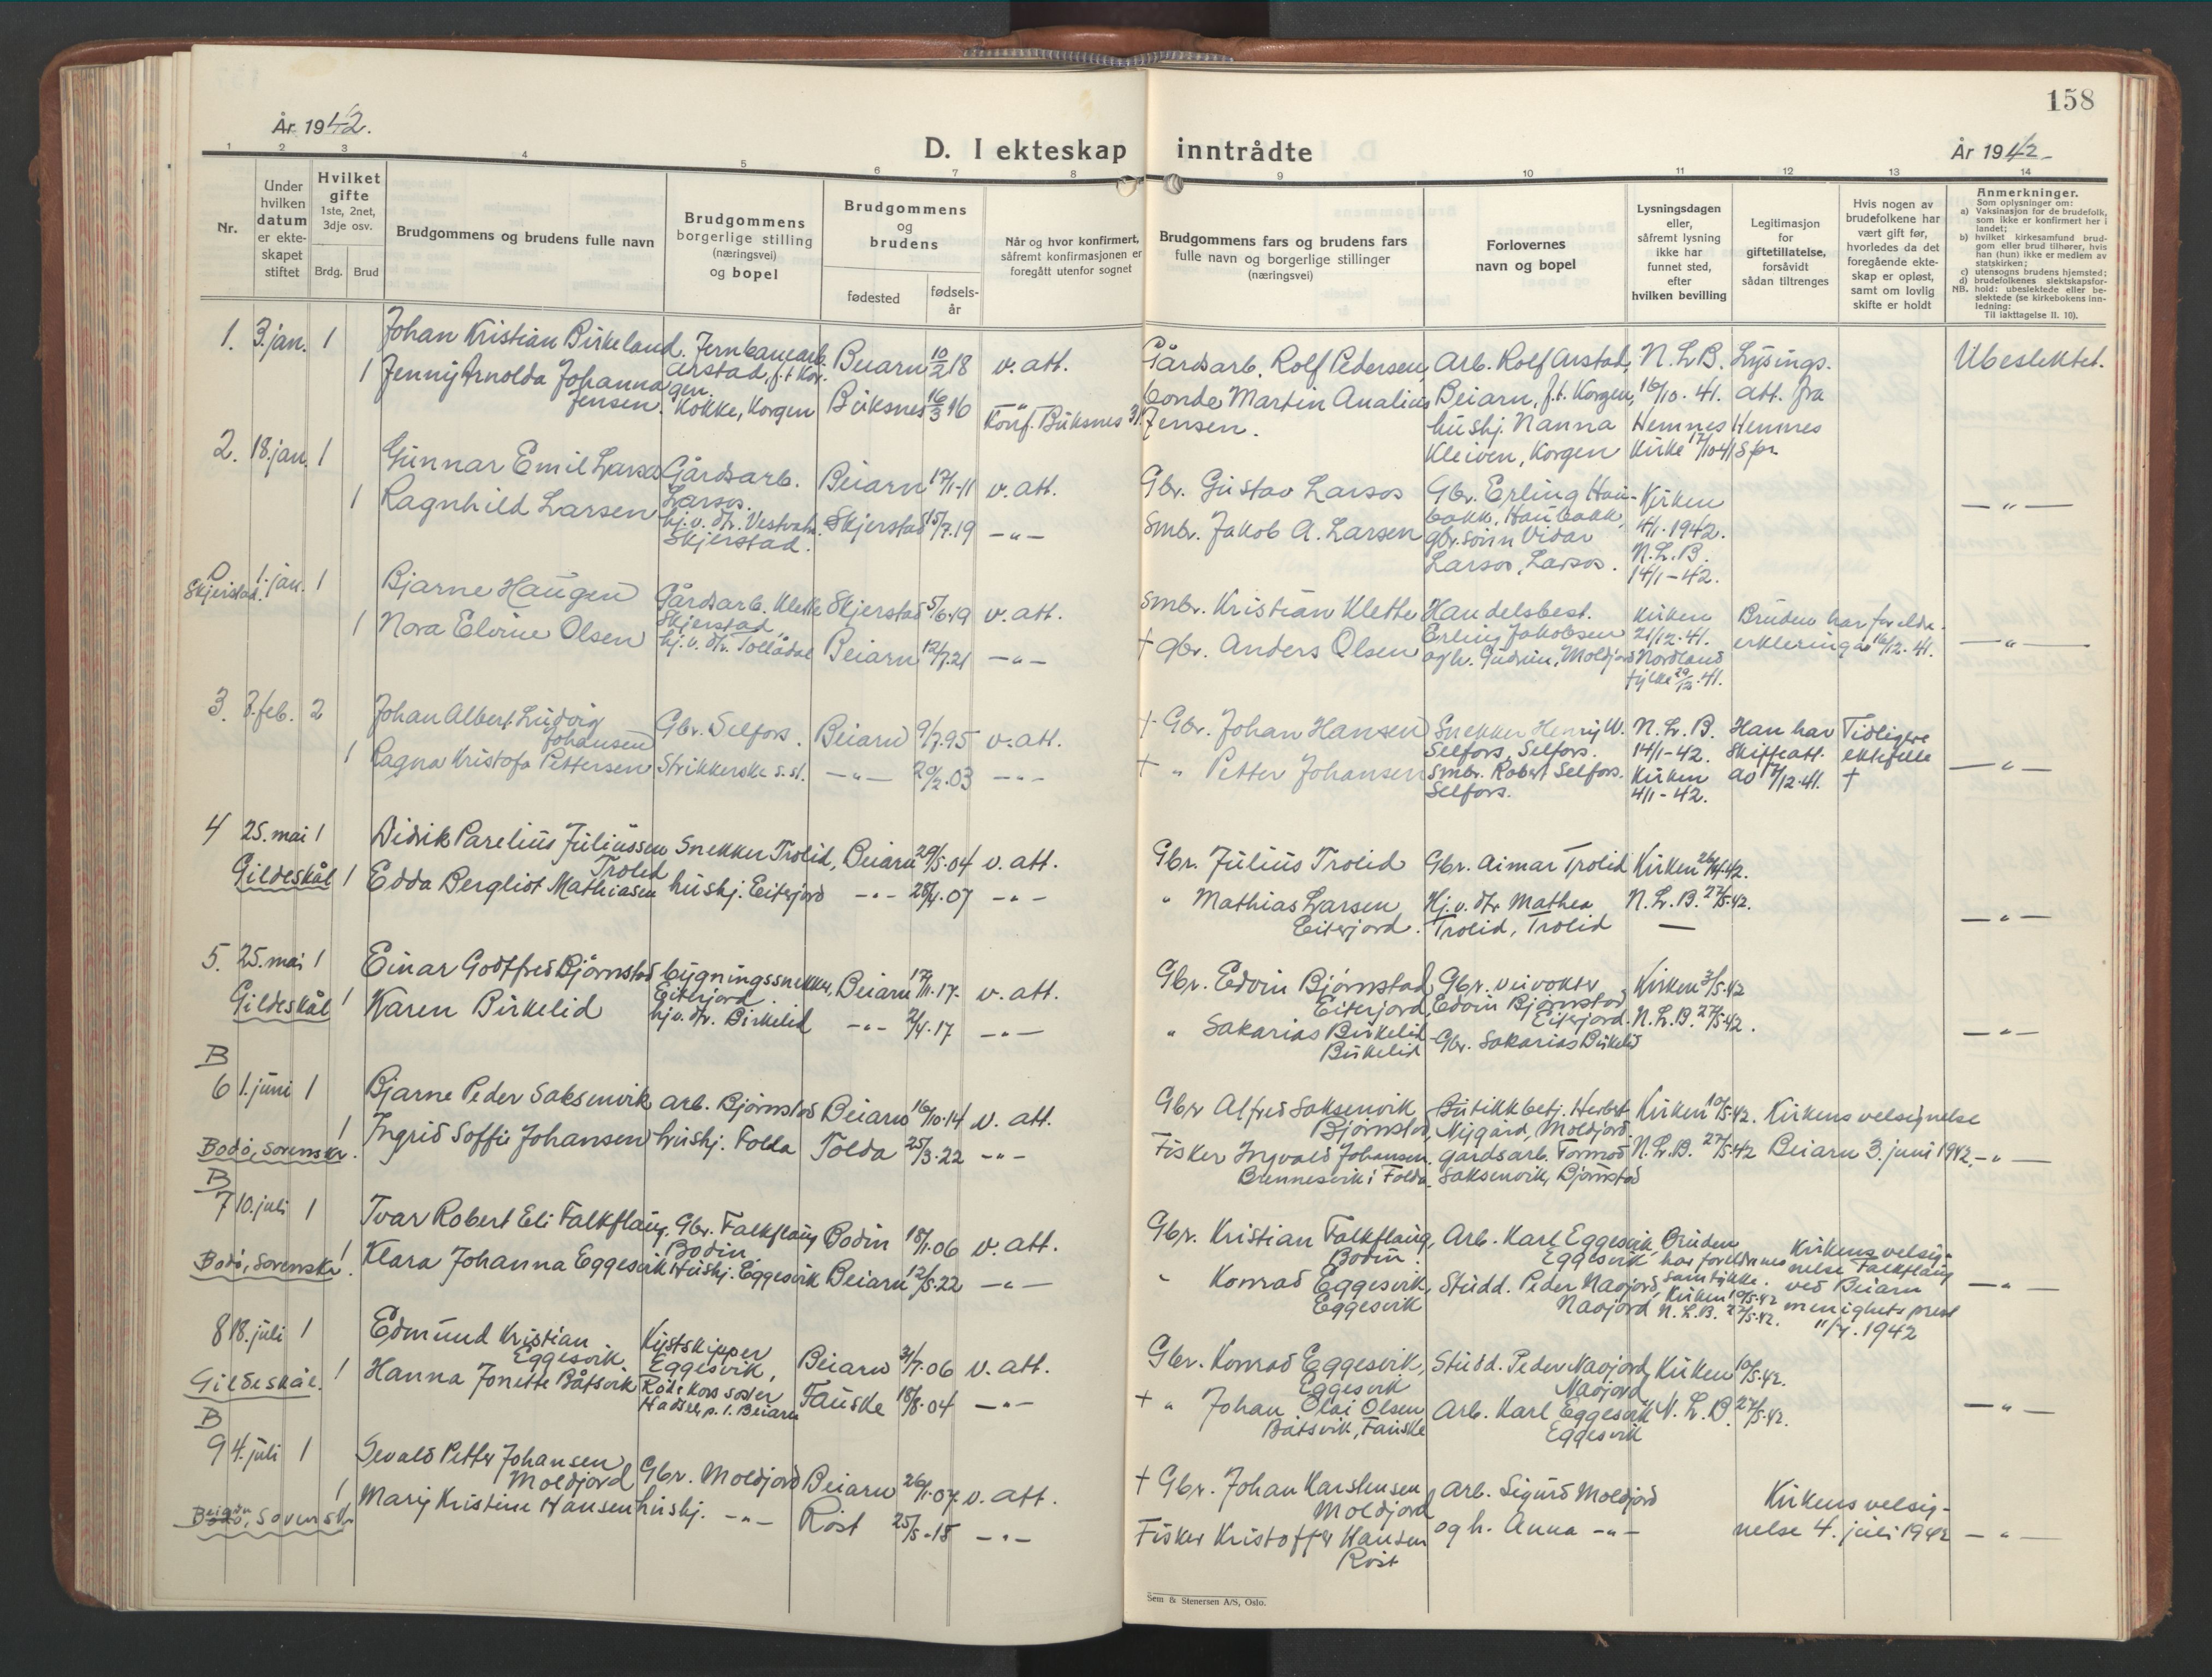 158
År 1942.
År 1942
D. I ekteskap inntrådte
1 2 3 4 5 6 7 8 9 10 11 12 13 14
Nr.
Under hvilken datum er ekteskapet stiftet
Hvilket gifte
1ste, 2net, 3dje osv.
Brdg. Brud
Brudgommens og brudens fulle navn
Brudgommens borgerlige stilling (næringsvei) og bopel
Brudgommens og brudens
fødested
fødselsår
Når og hvor konfirmert, såfremt konfirmasjonen er foregått utenfor sognet
Brudgommens fars og brudens fars fulle navn og borgerlige stillinger (næringsvei)
Forlovernes navn og bopel
Lysningsdagen eller, såfremt lysning ikke har funnet sted, efter hvilken bevilling
Legitimasjon for giftetillatelse, forsåvidt sådan tiltrenges
Hvis nogen av brudefolkene har vært gift før, hvorledes da det foregående ekteskap er opløst, samt om lovlig skifte er holdt
Anmerkninger.
Som oplysninger om:
a) Vaksinasjon for de brudefolk, som ikke er konfirmert her i landet;
b) hvilket kirkesamfund brudgom eller brud tilhører, hvis han (hun) ikke er medlem av statskirken;
c) utensogns brudens hjemsted;
d) brudefolkenes slektskapsforhold: ubeslektede eller beslektede (se kirkebokens innledning:
NB.
Til iakttagelse II. 10).
1. 3. jan. 1 Johan Kristian Birkeland. Jernbanearb. Arstad, f.t. Korgen. Beiarn 10/2 18 v. att.
Gårdsarb. Rolf Pedersen, Arb. Rolf Arstad, Beiarn, f.t. Korgen, N.L.B. 16/10-41. Lysings. att. fra Hemnes Spr. Ubeslektet.
1 Jenny Arnolda Johanna Jensen. Kokke, Korgen Buksnes 16/3 16 Konf. Buksnes 31.
bonde Martin Analius Jensen. hushj. Nanna Kleiven, Korgen Hemnes Kirke 12/10-41
2. 18. jan. 1 Gunnar Emil Larsos Gårdsarb. Larsos. Beiarn 17/1-11 v. att.
Gbr. Gustav Larsos Gbr. Erling Haubakk, Haubakk, Kirken 4/1-1942. — " —
1 Ragnhild Larsen hj.v. dtr. Skjerstad. Skjerstad 15/7.19 — " —
Smbr. Jakob A. Larsen gbr. sønn Vidar Larsos, Larsos. N.L.B. 14/1-42.
0 Skjerstad. 1. jan. 1 Bjarne Haugen Gårdsarb. Klette Skjerstad Skjerstad 5/6.19 v. att.
Smbr. Kristian Klette Handelsbest. Erling Jakobsen Kirken 21/12.41. Bruden har foreldreerklering av 16/12.41. — " —
1 Nora Elvine Olsen hj.v. dtr. Tollådal Beiarn 12/7.21 — " —
† Gbr. Anders Olsen og h. Gudrun, Moldjord Nordland fylke 29/12.41.
3. 8. feb. 2 Johan Albert Ludvig Johansen Gbr. Selfors. Beiarn 9/7.95 v. att.
† Gbr. Johan Hansen Snekker Henry W. Selfors, Selfors. N.L.B. 14/1-42. Han har Skifteatt. av 17/12.41. Tidligere ektefelle † — " —
1 Ragna Kristofa Pettersen Strikkerske s.st. — " — 20/2.03 — " —
† " Petter Johansen Smbr. Robert Selfors. Selfors. Kirken 4/1-42.
4 25. mai 1 Didrik Parelius Juliussen Trolid Snekker Trolid, Beiarn 29/5.04 v. att.
Gbr. Julius Trolid Gbr. Aimar Trolid Kirken 26/4.42.
Gildeskål 1 Edda Bergliot Mathiasen hushj. Eiterjord — " — 28/4.07 — " —
" Mathias Larsen Eiterjord. Hj.v. dtr. Mathea Trolid, Trolid N.L.B. 27/5.42. — " —
5. 25. mai 1 Einar Godtfred Bjørnstad bygningssnekker, Eiterjord. Beiarn 17/11.17. v. att.
Gbr. Edvin Bjørnstad, Eiterjord, Gbr. veivokter Edvin Bjørnstad, Eiterjord. Kirken 3/5.42
Gildeskål 1 Karen Birkelid hj.v. dtr. Birkelid — " — 2/4.17 — " —
" Sakarias Birkelid Birkelid Gbr. Sakarias Birkelid N.L.B. 27/5.42. — " —
B
6 1. juni 1 Bjarne Peder Saksenvik arb. Bjørnstad Beiarn 16/10.14 v. att.
Gbr. Alfred Saksenvik Bjørnstad, Butikkbetj. Herbert Nygård, Moldjord. Kirken 10/5.42. Kirkens velsignelse Beiarn 3. juni 1942. — " —
Bodø, Sorenskr. 1 Ingrid Soffie Johansen hushj. Folda Folda 25/3.22 — " —
Fisker Ingvald Johansen. Brennesvik i Folda. gårdsarb. Tormod Saksenvik, Bjørnstad N.L.B. 27/5.42
B
7 10. juli 1 Ivar Robert Eli Falkflaug. Gbr. Falkflaug Bodin. Bodin 18/1.06 v. att.
Gbr. Kristian Falkflaug, Bodin. Arb. Karl Eggesvik, Eggesvik Bruden har foreldrenes samtykke. Kirkens velsignelse Falkflaug ved Beiarn menighets prest 11/7.1942
Bodø, Sorenskr. 1 Klara Johanna Eggesvik Hushj. Eggesvik Beiarn 12/5.22 — " —
" Konrad Eggesvik, Eggesvik Studd. Peder Navjord, Navjord Kirken 10/5.42 N.L.B. 27/5.42. — " —
8 18. juli 1 Edmund Kristian Eggesvik. Kystskipper Eggesvik, Beiarn 31/7.06 v. att.
Gbr. Konrad Eggesvik, Eggesvik Studd. Peder Navjord, Navjord Kirken 10/5.42.
Gildeskål. 1 Hanna Jonette Båtsvik Røde Kors søster Hadsel, p.t. Beiarn Fauske 18/8.04 — " —
† " Johan Olai Olsen Båtsvik, Fauske Arb. Karl Eggesvik Eggesvik N.L.B. 27/5.42. — " —
B
9 4. juli 1 Sevald Petter Johansen Moldjord Gbr. Moldjord Beiarn 26/1.07. v. att.
† Gbr. Johan Karstensen Moldjord Arb. Sigurd Moldjord Kirkens velsignelse 4. juli 1942 — " —
Sorenskr. 1 Mary Kristine Hansen hushj. — " — Røst 25/5.15 — " —
Fisker Kristoffer Hansen Røst og h. Anna — " —
Sem & Stenersen A/S, Oslo.